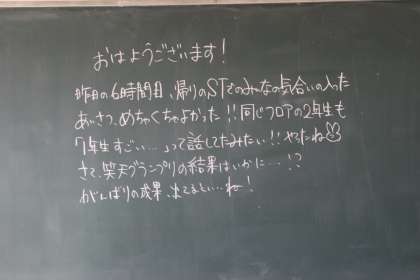 おはようございます！
昨日の6時間目、帰りのSTでのみんなの気合いの入った
あいさつ、めちゃくちゃよかった!!同じフロアの2年生も
「1年生すごい…」って話してたみたい!!やったね
さて、笑天グランプリの結果はいかに…!?
がんばりの成果、出てるといい…ね！